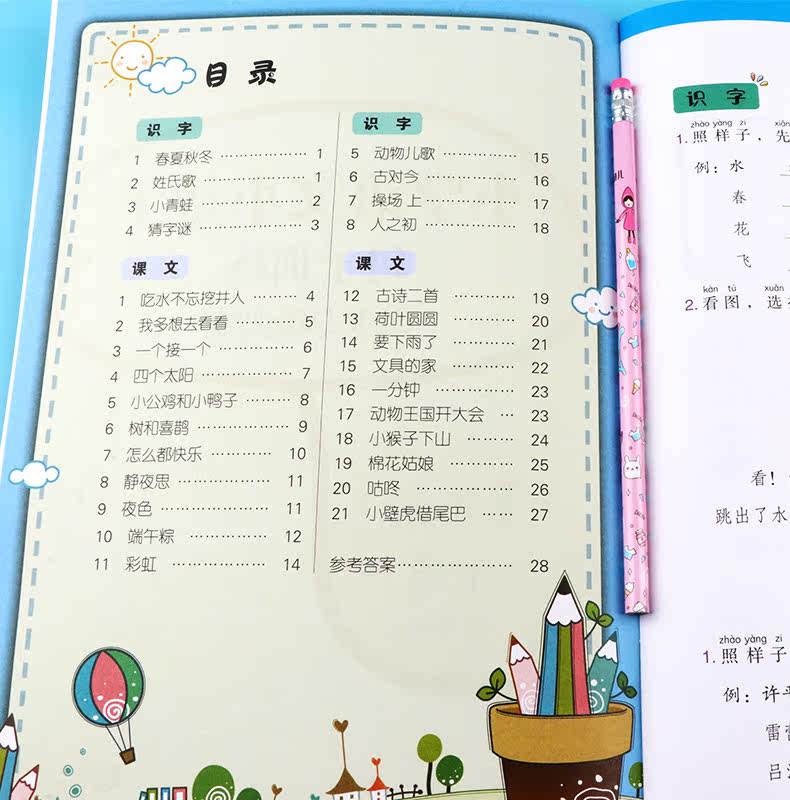 目录
识字
1 春夏秋冬 …………… 1
2 姓氏歌 …………… 1
3 小青蛙 …………… 2
4 猜字谜 …………… 3
课文
1 吃水不忘挖井人 ……… 4
2 我多想去看看 ………… 5
3 一个接一个 ………… 6
4 四个太阳 …………… 7
5 小公鸡和小鸭子 ……… 8
6 树和喜鹊 …………… 9
7 怎么都快乐 ………… 10
8 静夜思 …………… 11
9 夜色 …………… 11
10 端午粽 …………… 12
11 彩虹 …………… 14
识字
5 动物儿歌 …………… 15
6 古对今 …………… 16
7 操场上 …………… 17
8 人之初 …………… 18
课文
12 古诗二首 ………… 19
13 荷叶圆圆 ………… 20
14 要下雨了 ………… 21
15 文具的家 ………… 22
16 一分钟 …………… 23
17 动物王国开大会 … 23
18 小猴子下山 ……… 24
19 棉花姑娘 ………… 25
20 咕咚 …………… 26
21 小壁虎借尾巴 …… 27
参考答案…………………… 28
识字
zhào yàng zi
1.照样子，先
例：水
春
花
飞
kàn tú xuǎn
2.看图，选
看！
跳出了水
zhào yàng zi
1.照样子
例：许
雷
吕